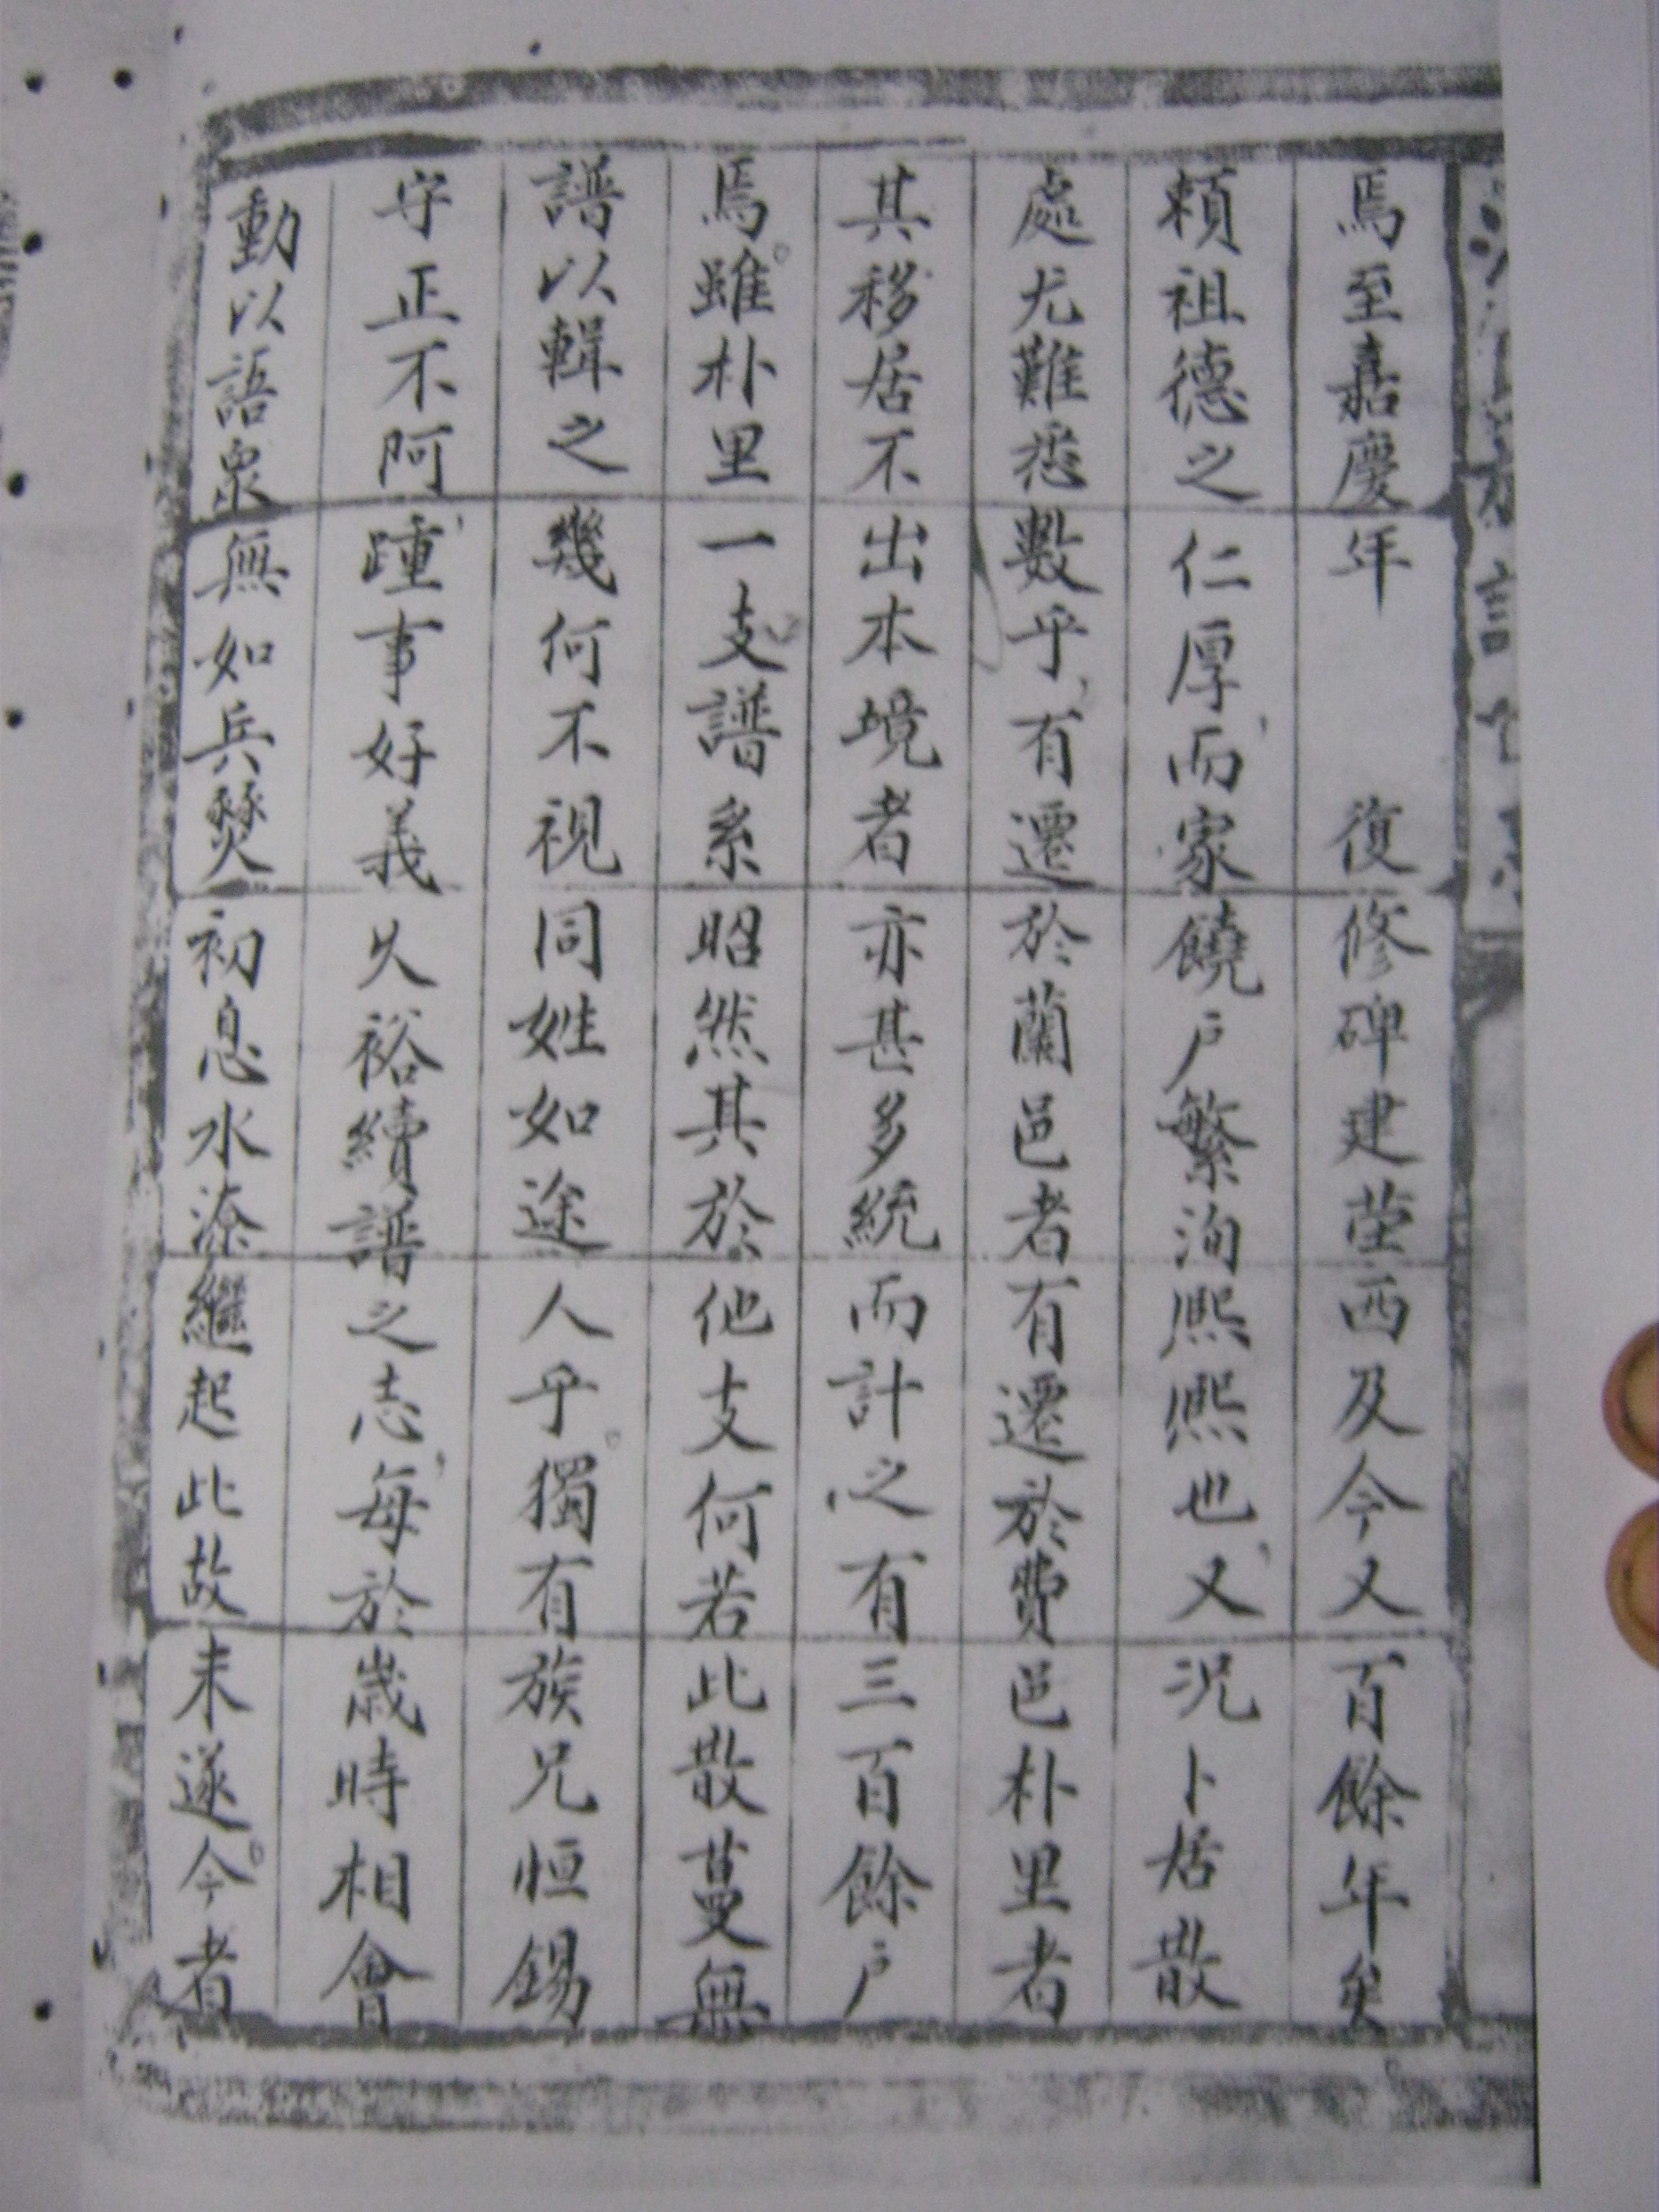 焉至嘉慶年　　復修碑建茔西及今又百餘年矣
頼祖德之仁厚而家饒户繁洵熙熙也又况卜居散
處尤難悉數乎有遷於蘭邑者有遷於費邑朴里者
其移居不出本境者亦甚多統而計之有三百餘户
焉雖朴里一支譜系昭然其於他支何若此散蔓無
譜以輯之幾何不視同姓如途人乎獨有族兄恒錫
守正不阿踵事好義久裕續譜之志每於歲時相會
動以語衆無如兵燹初息水潦繼起此故未遂今者